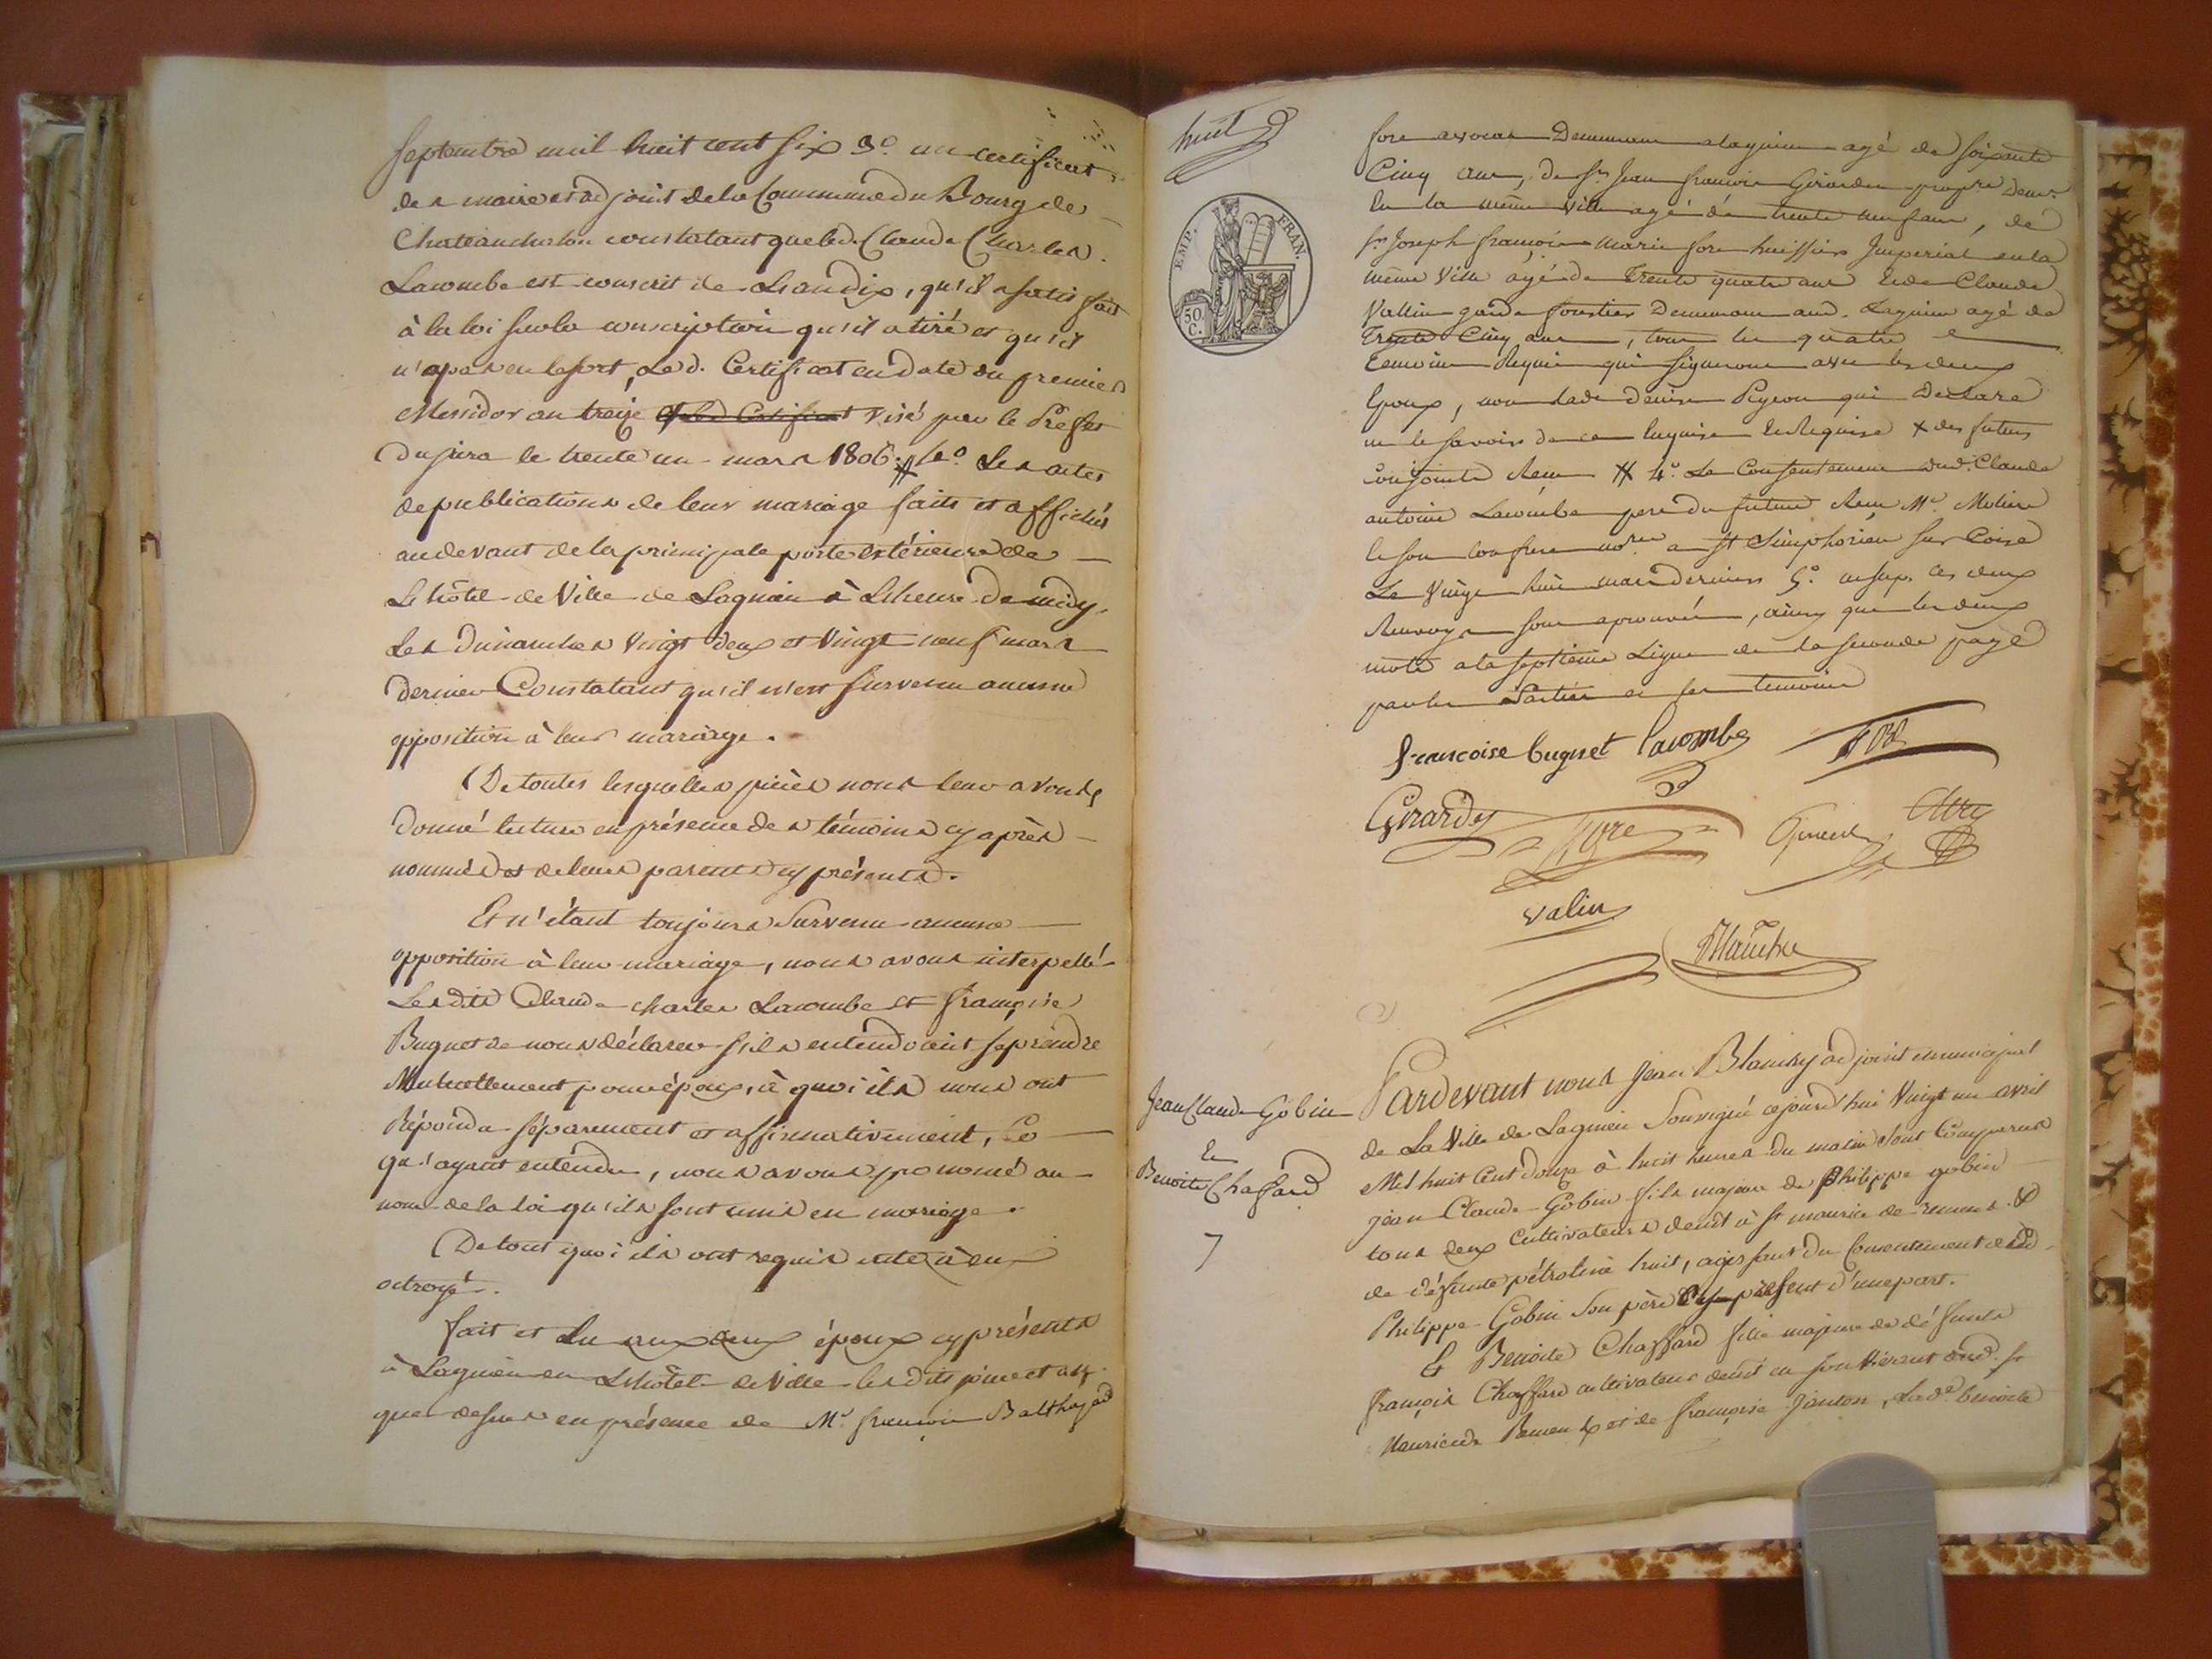 septembre mil huit cent six 3.o un certificat
des maire et adjoint de la Commune du Bourg de
Chateauchalon constatant que led. Claude Charles
Lacombe est conscrit de L'an dix, qu'il a satisfait
à la loi sur la conscription qu'il a tiré et qu'il
n'a pas eu le sort, Led. Certificat en date du premier
Messidor an treize visé par le Prefet
du jura le trente un mars 1806. Les actes
de publications de leur mariage faits et affichés
au devant de la principale porte extérieure de
L'hôtel de Ville de Lagnieu à L'heure de midy,
Les Dimanches Vingt deux et Vingt neuf mars
dernier Constatant qu'il n'est survenu aucune
opposition à leur mariage.
De toutes lesquelles pièces nous leur avons
donné lecture en présence des témoins cy après
nommés et de leurs parents cy présents.
Et n'étant toujours Survenu aucune
opposition à leur mariage, nous avons interpellé
Lesdits Claude charles Lacombe et françoise
Bugnet de nous déclarer s'ils entendoient se prendre
Mutuellement pour époux, à quoi ils nous ont
Répondu séparement et affirmativement, Ce
qu'ayant entendu, nous avons prononcé au
nom de la loi qu'ils sont unis en mariage.
De tout quoi ils ont requis acte à eux
octroyé.
fait et lu aux deux époux cy présents
à Lagnieu en L'hôtel de Ville lesdits jour et an
que dessus en présence de Mr. françois Balthazard
huit
EMP. FRAN.
50 C.
fore avocat Demeurant a lagnieu agé de soixante
Cinq ans, de sr. Jean françois Girardy propre. Demt.
En la même Ville agé de trente neuf ans, de
sr. Joseph françois Marie fore huissier Imperial en la
même Ville agé de Trente quatre ans et de Claude
Vallin garde forestier Demeurant aud. Lagnieu agé de
Trente Cinq ans, tous les quatre
temoins Requis qui signeront avec les deux
Epoux, non lade denise Pigeon qui Declare
ne le savoir de ce Enquise et Requise + des futurs
conjoints 4.o Le Consentement dud. Claude
antoine Lacombe pere du futur Mr. Moliere
et son confrere nore. a St Simphorien sur Coise
Le Vingt huit mars dernier 5.o Ces deux
Renvoys sont aprouvés, ainsy que les deux
mots a la septieme Ligne de la seconde page
par les Parties et les temoins
francoise bugnet lacombe fore
Girardy fore
valin
Blanchy
Jean Claude Gobin
Et
Benoite Chaffard
7
Pardevant nous Jean Blanchy adjoint municipal
de La Ville de Lagnieu Soussigné cejourd'hui Vingt un avril
Mil huit Cent Douze à huit heures du matin Sont Comparus
Jean Claude Gobin fils majeur de Philippe gobin
tous deux Cultivateurs demt à St maurice de remens &
de défunte pétroline huit, agissant du Consentement dud.
Philippe Gobin Son père cy présent d'une part.
Et Benoite Chaffard fille majeure de défunts
françois Chaffard cultivateur demt en son Vivant aud. St
Maurice de Remens et de françoise Janton, Lade. benoite